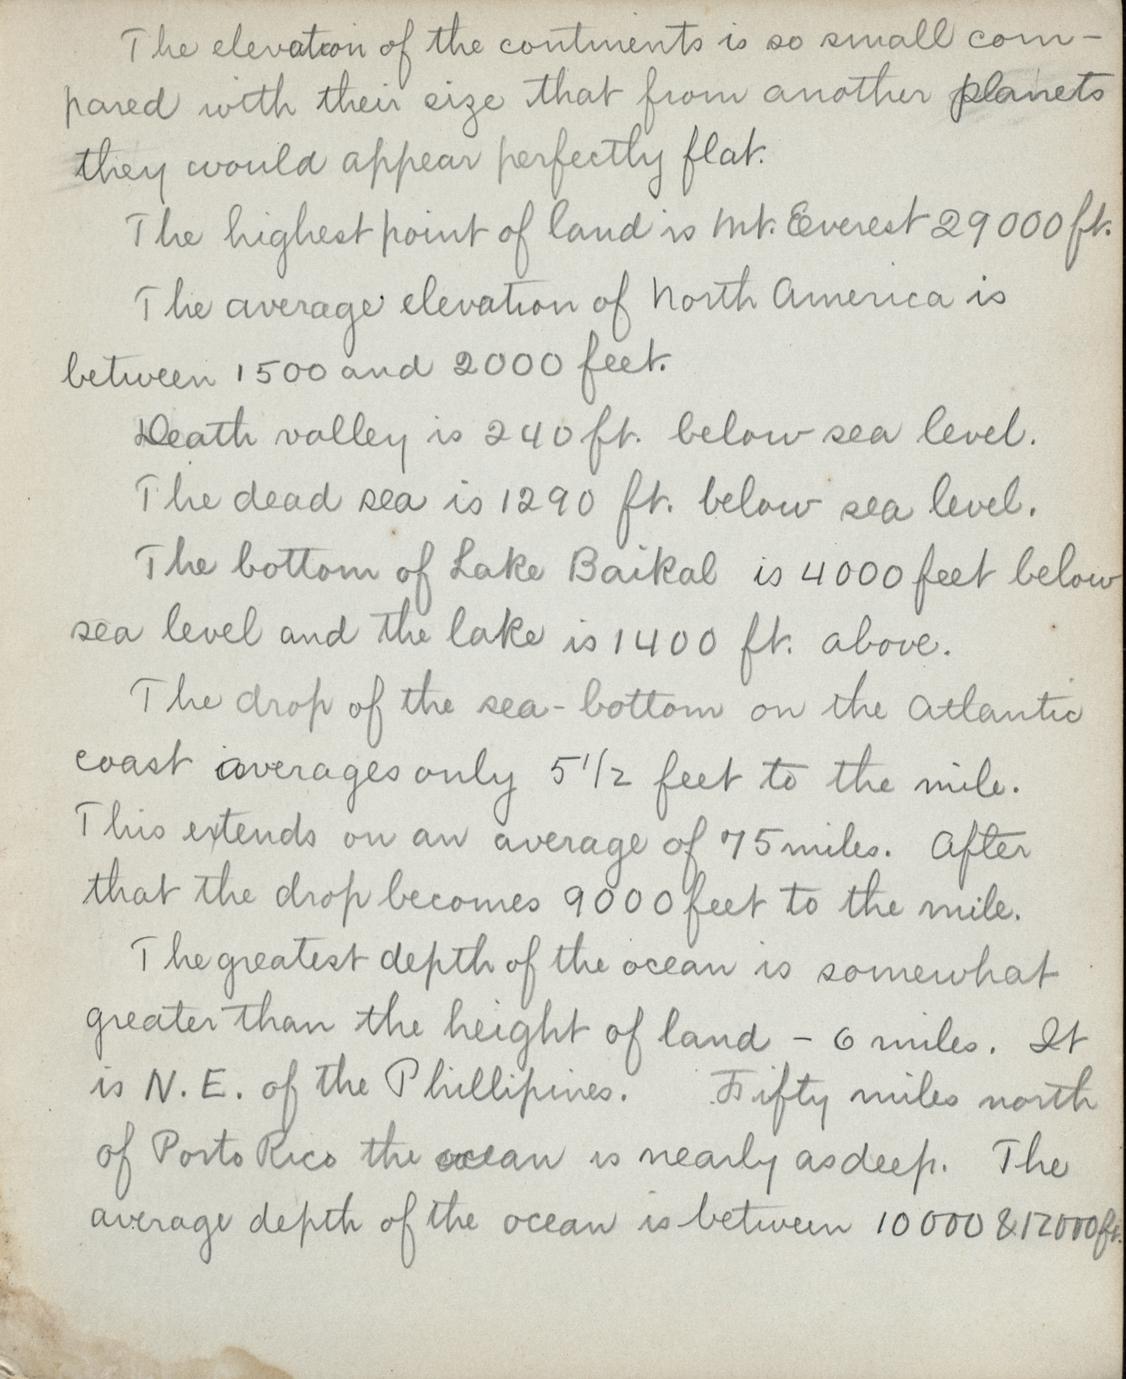 The elevation of the continents is so small com-
pared with their size that from another planets
they would appear perfectly flat.
The highest point of land is Mt. Everest 29000 ft.
The average elevation of North America is
between 1500 and 2000 feet.
Death valley is 240 ft. below sea level.
The dead sea is 1290 ft. below sea level.
The bottom of Lake Baikal is 4000 feet below
sea level and the lake is 1400 ft. above.
The drop of the sea-bottom on the Atlantic
coast averages only 5 1/2 feet to the mile.
This extends on an average of 75 miles. After
that the drop becomes 9000 feet to the mile.
The greatest depth of the ocean is somewhat
greater than the height of land - 6 miles. It
is N.E. of the Phillipines. Fifty miles north
of Porto Rico the ocean is nearly as deep. The
average depth of the ocean is between 10000 & 12000 ft.